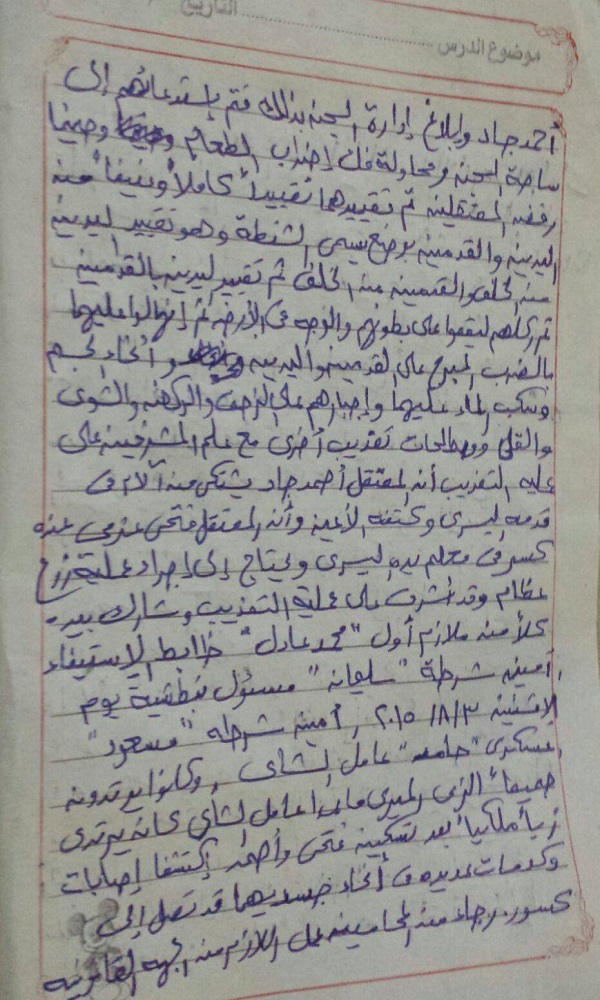 التاريخ
موضوع الدرس
أحمد جاد وإبلاغ إدارة السجن بذلك فتم إستدعائهم إلى
ساحة السجن ومحاولة فك إضراب الطعام وحينما
رفض المعتقلين تم تقييدهما تقييداً كاملاً وعنيفاً من
اليدين والقدمين بوضع يسمى الشنطة وهو تقييد اليدين
من الخلف والقدمين من الخلف ثم تقييد اليدين بالقدمين
ثم ركلهم ليقعوا على بطونهم والوجه فى الأرض ثم إنهالوا عليهما
بالضرب المبرح على القدمين واليدين وأنحاء الجسم
وسكب الماء عليهما وإجبارهم على الزحف والركض والشوى
والقلى ومصطلحات تعذيب أخرى مع علم المشرفين على
عليه التعذيب أن المعتقل أحمد جاد يشتكى من آلام فى
قدمه اليسرى وكتفه الأيمن وأن المعتقل فتحى عزمى عنده
كسر فى معلم يده اليسرى ويحتاج إلى إجراء عملية زرع
عظام وقد أشرف على عملية التعذيب وشارك بيده
كلاً من ملازم أول "محمد عادل" ضابط الإستيفاء
، أمين شرطة "سليمان" مسئول نبطشية يوم
الإثنين ٢٠١٥/٨/٣ ، أمين شرطه "مسعود"
، عسكرى "حامد" عامل الشاى ، وكانوا يرتدون
جميعاً الزى الميرى ماعدا عامل الشاى كان يرتدى
زياً ملكياً بعد تسكين فتحى وأحمد إكتشفا إصابات
وكدمات عديده فى أنحاء جسديهما قد تصل إلى
كسور. رجاء من المحامين عمل اللازم من الجهه القانونيه